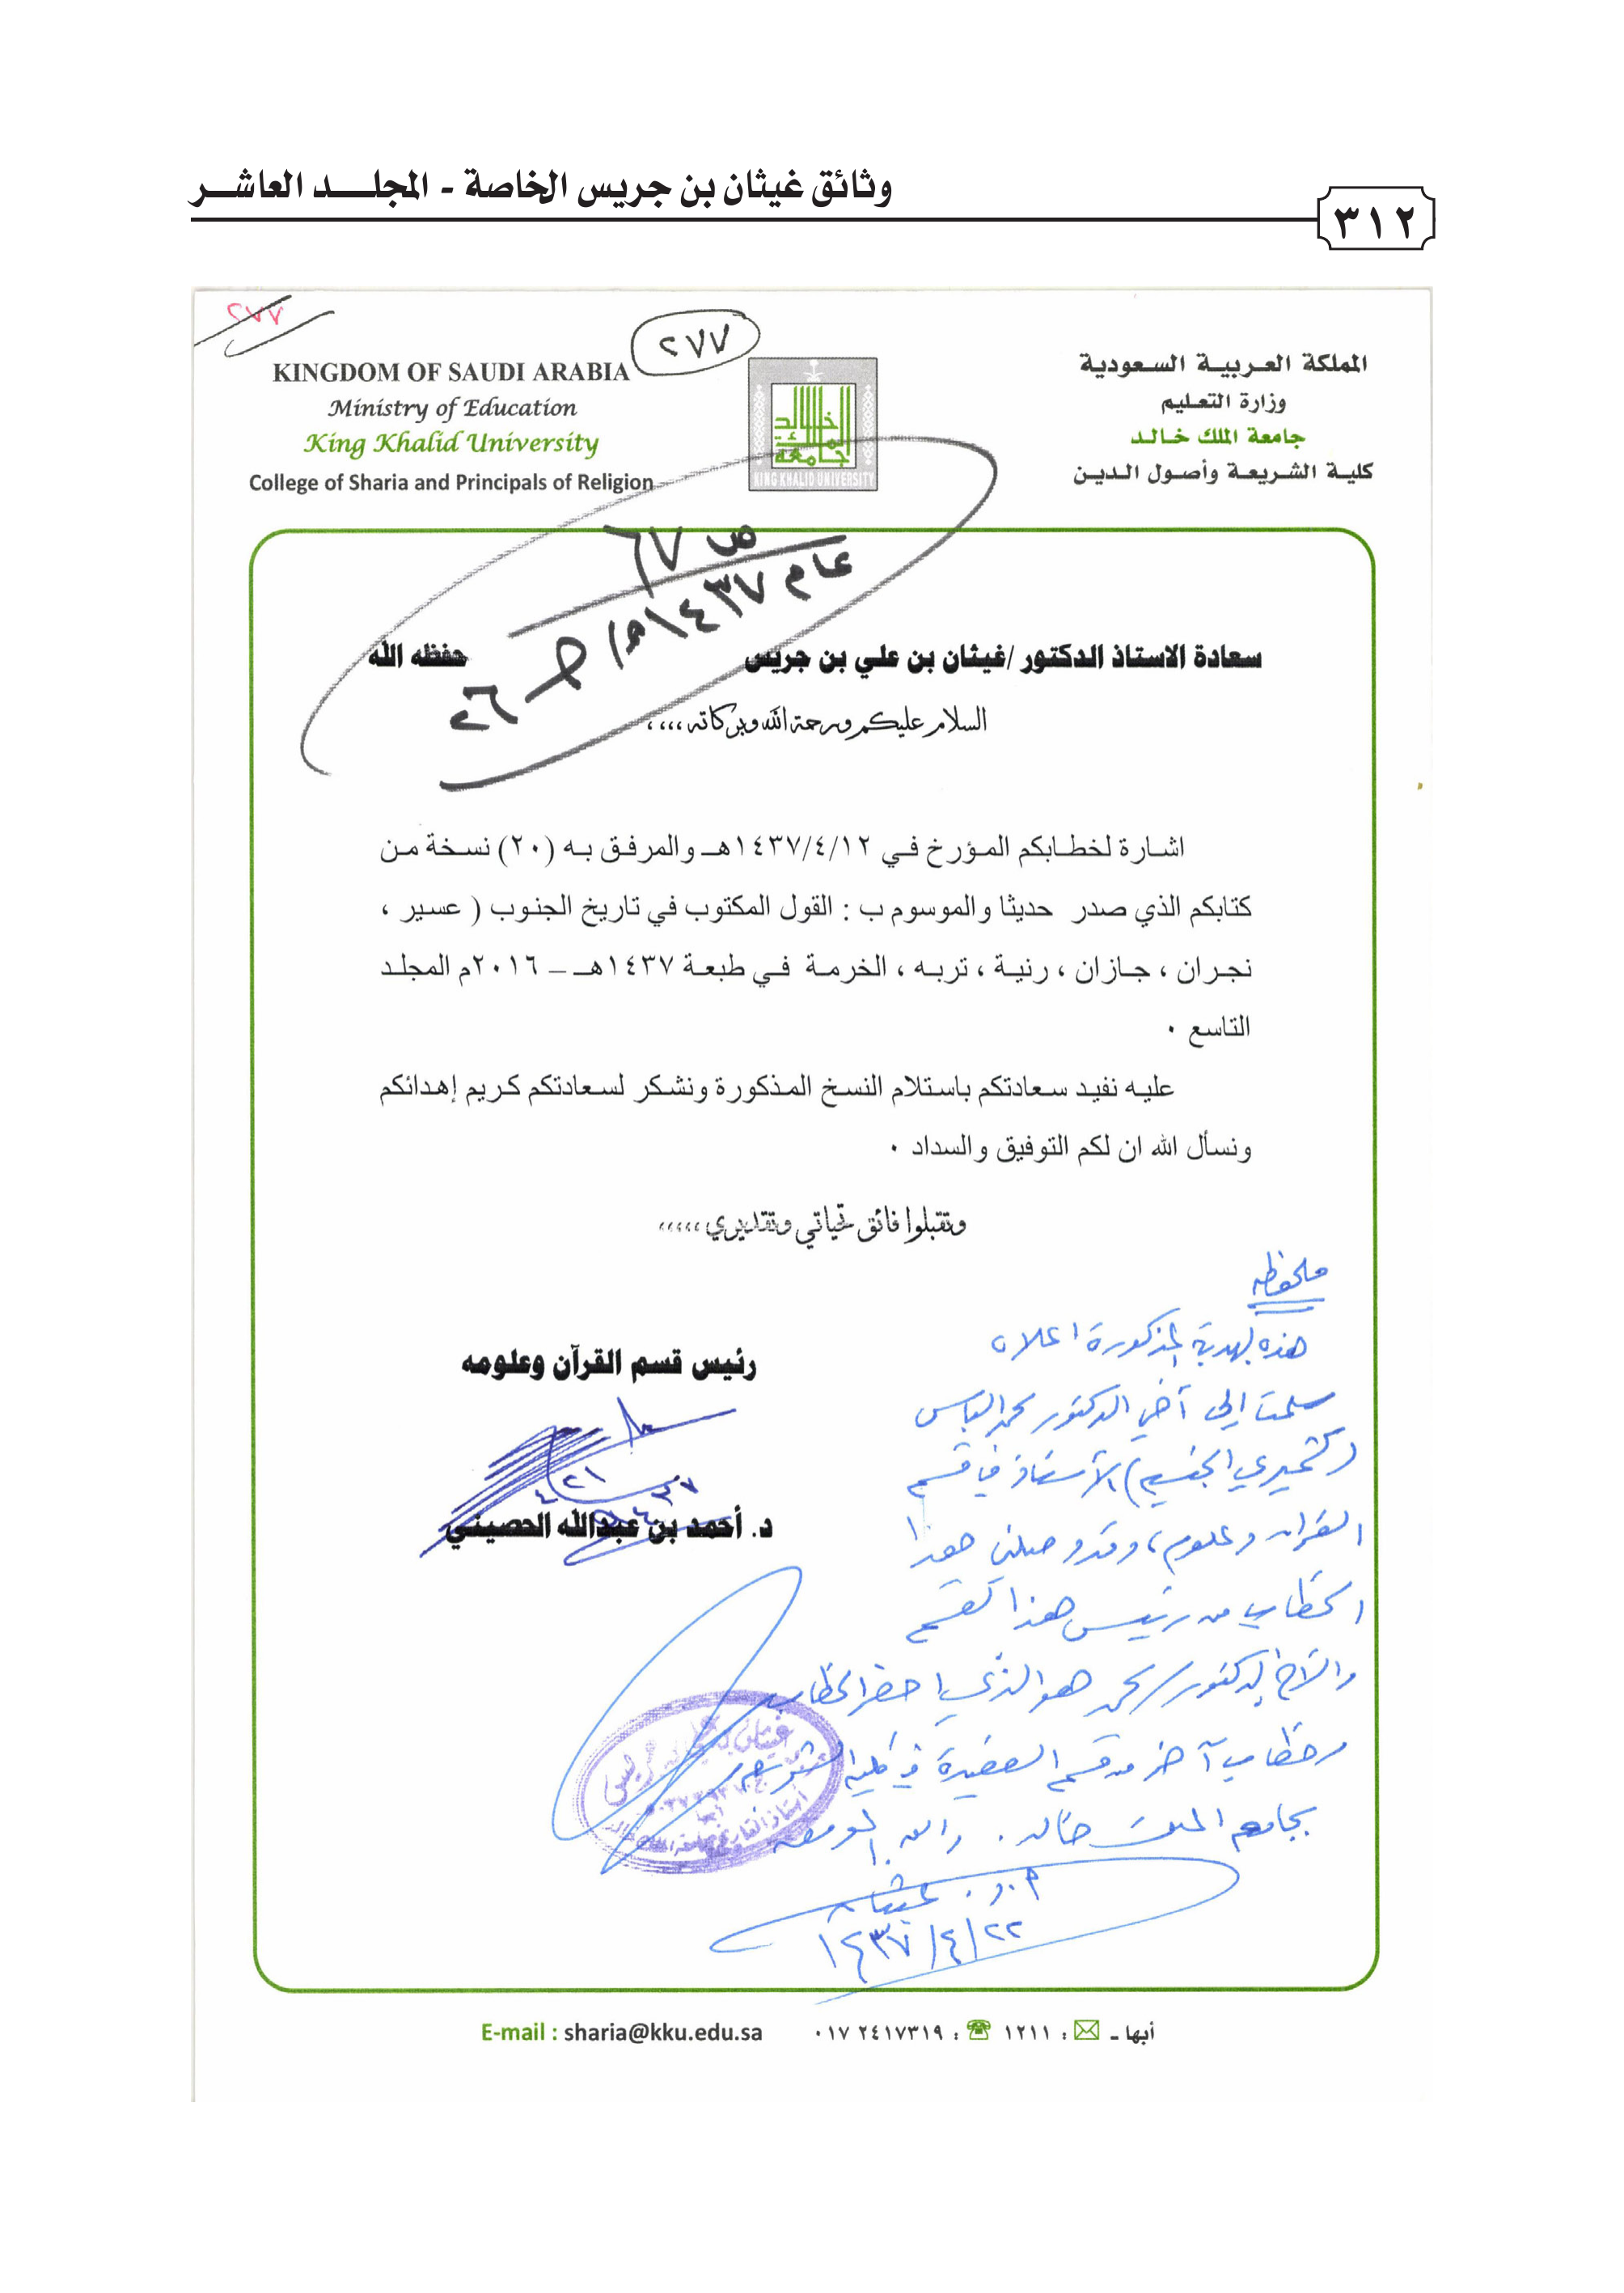 وثائق غيثان بن جريس الخاصة - المجلد العاشر
٣١٢
٢٧٧
٢٧٧
KINGDOM OF SAUDI ARABIA
Ministry of Education
King Khalid University
College of Sharia and Principals of Religion
KING KHALID UNIVERSITY
المملكة العربية السعودية
وزارة التعليم
جامعة الملك خالد
كلية الشريعة وأصول الدين
ص ٦٧
عام ١٤٣٧هـ
سعادة الاستاذ الدكتور /غيثان بن علي بن جريس حفظه الله
السلام عليكم ورحمة الله وبركاته ،،،،
اشارة لخطابكم المؤرخ في ١٤٣٧/٤/١٢هـ والمرفق به (٢٠) نسخة من
كتابكم الذي صدر حديثا والموسوم ب : القول المكتوب في تاريخ الجنوب ( عسير ،
نجران ، جازان ، رنية ، تربه ، الخرمة في طبعة ١٤٣٧هـ – ٢٠١٦م المجلد
التاسع ٠
عليه نفيد سعادتكم باستلام النسخ المذكورة ونشكر لسعادتكم كريم إهدائكم
ونسأل الله ان لكم التوفيق والسداد ٠
وتقبلوا فائق تحياتي وتقديري ،،،،،
رئيس قسم القرآن وعلومه
د. أحمد بن عبدالله الحصيني
ملحوظه
هذه الهدية المذكورة اعلاه
سلمت إلى أخي الدكتور محمد الياس
(كشميري الجنسية) الأستاذ في قسم
القرآن وعلومه، وقد وصلني هذا
الخطاب من رئيس هذا القسم
والأخ الدكتور محمد هو الذي احضر الخطاب
وخطاب آخر من قسم العقيدة في كلية الشريعة
بجامعة الملك خالد. والله الموفق
أ.د. غيثان
١٤٣٧/٤/٢٢
أبها ـ : ١٢١١ : ٠١٧ ٢٤١٧٣١٩ E-mail : sharia@kku.edu.sa